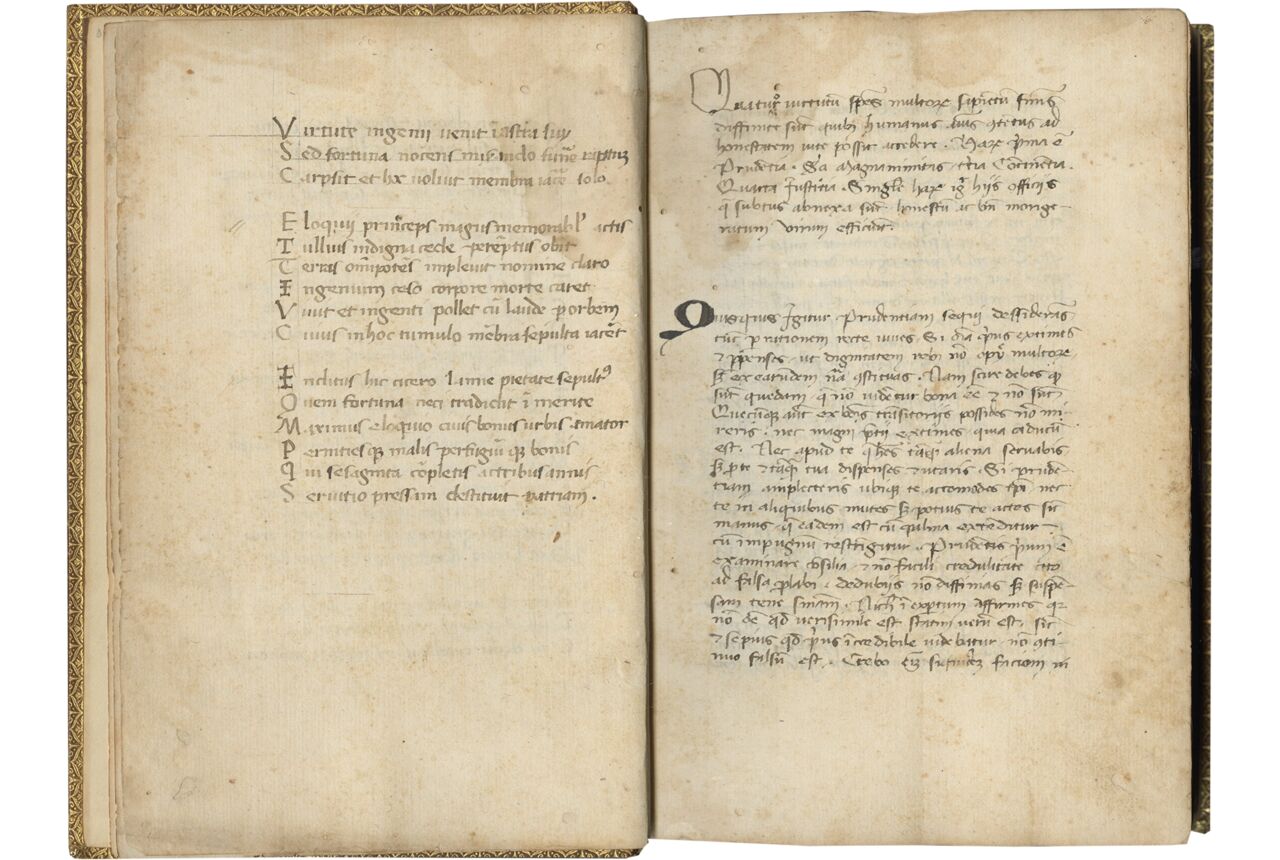 Virtute ingenii venit i astra suy
Sed fortuna nocens nimio fune raptuz
Carpsit et hoc voluit membra iace solo.
Eloquii prīceps magnus memorabl' actis
Tullius indigna cede peremptus obit
Terras omīpotēs impleuit nomine claro
Ingenium celso corpore morte caret
Viuit et ingenti pollet cū laude p orbem
Cuius in hoc tumulo mēbra sepulta iacēt
Inclitus hic cicero pietate sepult9
Quem fortuna neci tradidit īmerite
Maximus eloquio ciuis bonus urbis amator
Pernitiesq malis perfugiūq bonis
Qui sesaginta cōpletis annis
Seruitio pressam destituit patriam.
Quatuor virtutū spēs multorꝫ sapiētū
diffinite sūt quibꝫ humanus aīus ad
honestatem vite possit accedere. Harꝫ p̄ma ē
Prudētia. Sꝫa Magnanimitas. t̄tia Cōtinētia.
Quarta Justitia. Singule harꝫ ig̃ hiis officiis
q̄ subtus annexa sūt honestū ac bn̄ morige-
ratum virum efficiūt.
Quisquis Igitur Prudentiam sequi dessideras
tūc p rationem recte viues. Si oīa p̄us extimes
⁊ ppenses ut dignitatem rebꝫ nō multorꝫ
sꝫ ex earudem nā ꝯstituas. Nam scire debes q̄
sūt quedam q̄ nō videtur bona ēē ⁊ nō sūt
Quecūqꝫ aūt ex bōis trāsitoriis possides nō mi-
reris. nec magni p̄tii extimes quia caducū
est. Nec apud te q̄ hēs tāqꝫ aliena seruabis
sꝫ p te ⁊ tāqꝫ tua dispenses ⁊ utaris. Si prude-
tiam amplecteris ubiqꝫ te accomodes tpī nec
te in aliquibus mutes sꝫ potius te aptes sic
manus q̄ eadem est cū ī palma extēditur
cū ī pugnū restrīgitur. Prudētis p̄rium ē
examinare ꝯsilia ⁊ nō facili credulitate cito
ad falsa p̱labi. de dubiis nō diffinias sꝫ suspē-
sam tene snīam. Nichil īexpertum affirmes qꝛ
nō ōē qd̄ verisimile est statim verū est. sic
⁊ sepius qd̄ p̄us īcredibile videbatur nō ꝯti-
nuo falsū est. Crebo faciem